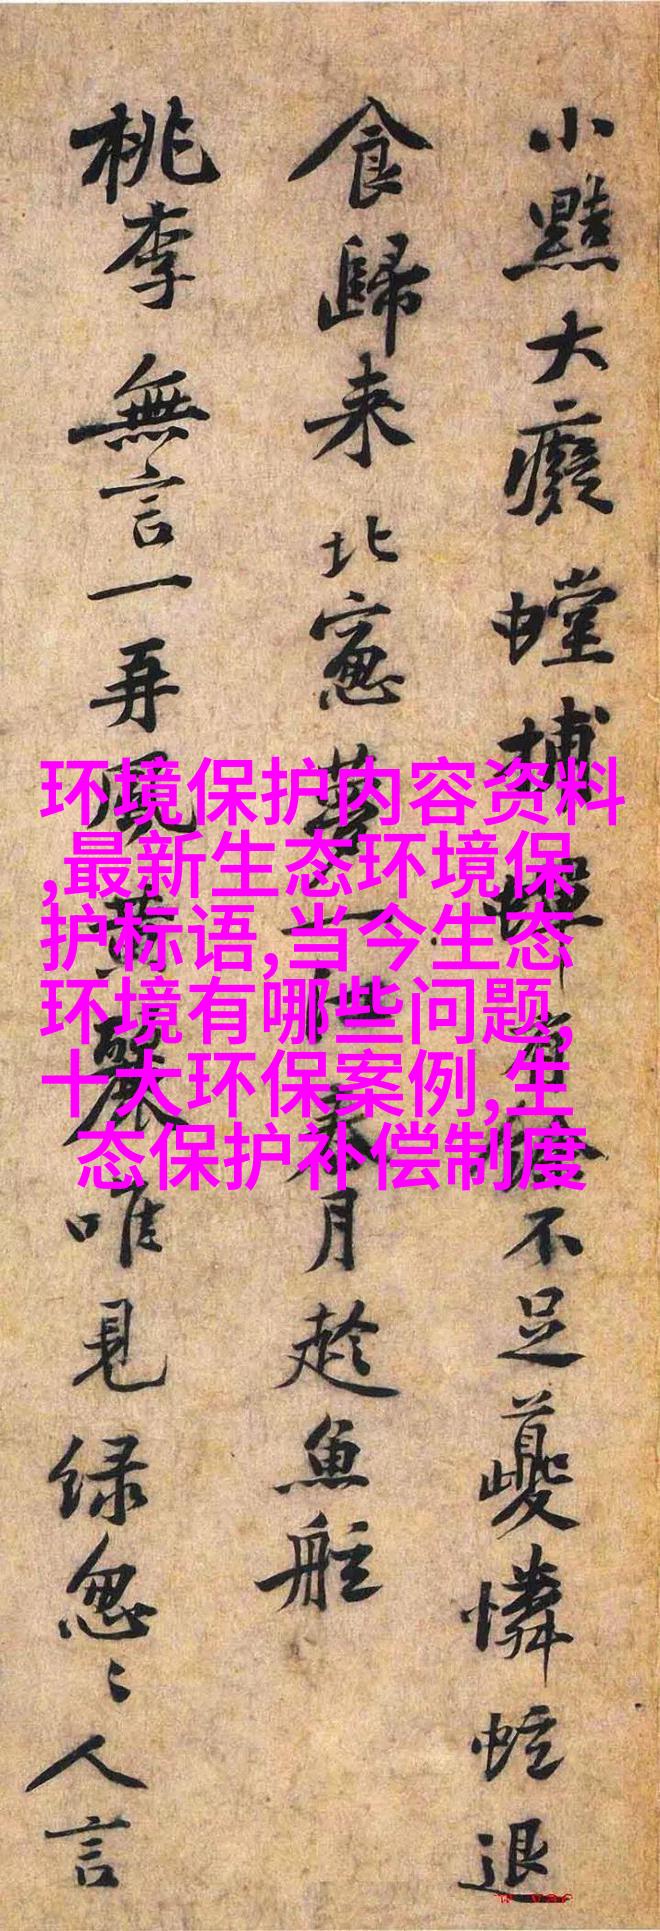 小黠大癡螳捕蟬有餘不足夔憐蚿退
食歸来北窻夢一江春月趂魚船
桃李無言一再風黄鸝唯見緑怱〻人言
环境保护内容资料
,最新生态环境保
护标语,当今生态
环境有哪些问题,
十大环保案例,生
态保护补偿制度